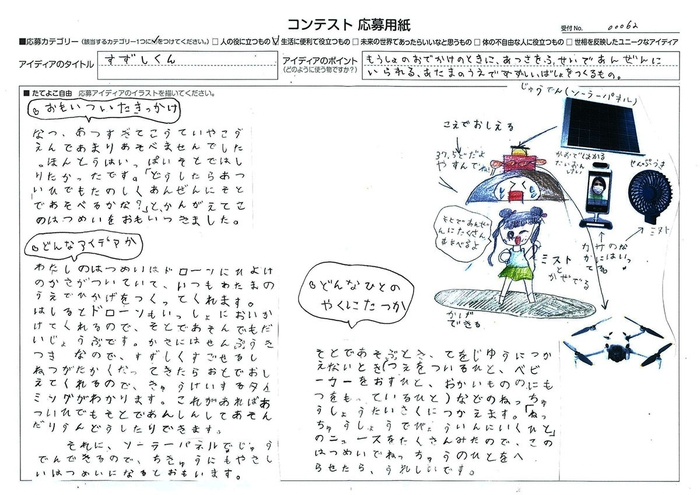 コンテスト 応募用紙
受付No. 00062
■応募カテゴリー(該当するカテゴリー1つに✓をつけてください。) □ 人の役に立つもの ☑ 生活に便利で役立つもの □ 未来の世界であったらいいなと思うもの □ 体の不自由な人に役立つもの □ 世相を反映したユニークなアイディア
アイディアのタイトル
すずしくん
アイディアのポイント
(どのように使う物ですか?)
もうしょのおでかけのときに、あつさをふせいであんぜんに
いられる、あたまのうえですずしいばしょをつくるもの。
■ たてよこ自由 応募アイディアのイラストを描いてください。
おもいついたきっかけ
なつ、あつすぎてこうていやこう
えんであまりあそべませんでした
。ほんとうはいっぱいそとではし
りたかったです。「どうしたらあつ
いひでもたのしくあんぜんにそと
であそべるかな?」と、かんがえてこ
のはつめいをおもいつきました。
どんなアイデアか
わたしのはつめいはドローンにひよけ
のかさがついていて、いつもわたまの
うえでひかげをつくってくれます。
はしるとドローンもいっしょにおいか
けてくれるので、そとであそんでもだ
いじょうぶです。かさにはせんぷうき
つきなので、すずしくすごせるし
ねつがたかくなってきたらおとでおし
えてくれるので、きゅうけいするタイ
ミングがわかります。これがあればあ
ついひでもそとであんしんしてあそん
だりうんどうしたりできます。
それに、ソーラーパネルでじゅう
でんできるので、ちきゅうにもやさし
いはつめいになるとおもいます。
どんなひとの
やくにたつか
そとであそぶとき、てをじゆうにつか
えないとき(つえをついるひと、ベビ
ーカーをおすひと、おかいもののにも
つをもっているひと)などのねっちゅ
うしょうたいさくにつかえます。「ねっ
ちゅうしょうでびょういんにいくひと」
のニュースをたくさんみたので、この
はつめいでねっちゅうのひとをへ
らせたら、うれしいです。
じゅうでん(ソーラーパネル)
こえでおしえる
37.5どだよ
やすんでね!
かおではかる
たいおん
けい
せんぷうき
ミスト
ミスト
とかぜでる
かげが
できる